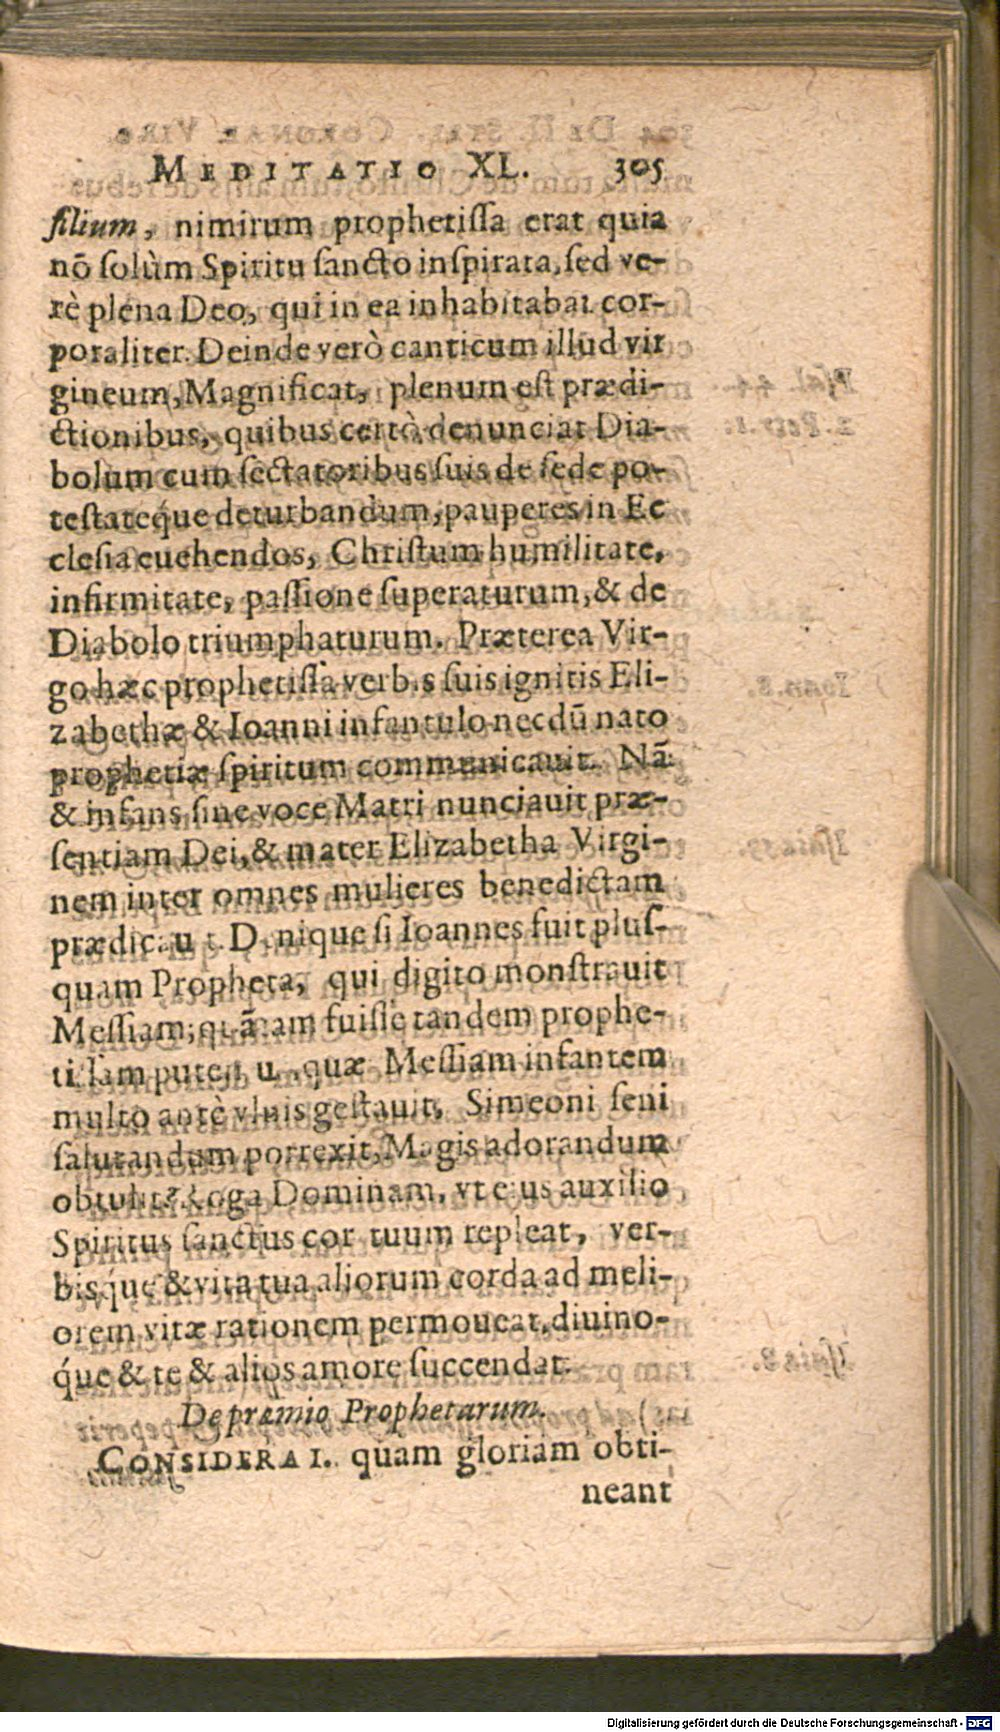 MEDITATIO XL. 305
filium, nimirum prophetiſſa erat quia
nō ſolùm Spiritu ſancto inſpirata, ſed ve-
rè plena Deo, qui in ea inhabitabat cor-
poraliter. Deinde verò canticum illud vir
gineum, Magnificat, plenum eſt prædi-
ctionibus, quibus certò denunciat Dia-
bolum cum ſectatoribus ſuis de ſede po-
teſtateq́ue deturbandum, pauperes in Ec
cleſia euehendos, Chriſtum humilitate,
infirmitate, paſſione ſuperaturum, & de
Diabolo triumphaturum. Præterea Vir-
go hæc prophetiſſa verbis ſuis ignitis Eli-
zabethæ & Ioanni infantulo necdū nato
prophetiæ ſpiritum communicauit. Nā
& infans ſine voce Matri nunciauit præ-
ſentiam Dei, & mater Elizabetha Virgi-
nem inter omnes mulieres benedictam
prædicauit. Denique ſi Ioannes fuit pluſ-
quam Propheta, qui digito monſtrauit
Meſſiam; quātam fuiſſe tandem prophe-
tiſſam puten u, quæ Meſſiam infantem
multo antè vlnis geſtauit, Simeoni ſeni
ſalutandum porrexit, Magis adorandum
obtulit? Roga Dominam, vt eius auxilio
Spiritus ſanctus cor tuum repleat, ver-
bisq́ue & vita tua aliorum corda ad meli-
orem vitæ rationem permoueat, diuino-
q́ue & te & alios amore ſuccendat.
De præmio Prophetarum.
CONSIDERA I. quam gloriam obti-
neant
Digitalisierung gefördert durch die Deutsche Forschungsgemeinschaft - DFG